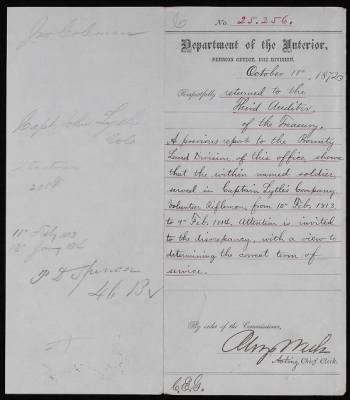 Jas Coleman
Capt John Lytle
Cols
P D Spencer
46 B
C
No. 25.256.
Department of the Interior,
PENSION OFFICE, 1812 DIVISION,
October 18th, 1872
Respectfully returned to the
Third Auditor,
of the Treasury.
A previous report to the Bounty
Land Division of this office shows
that the within named soldier
served in Captain Lytle's Company,
Volunteer Riflemen, from 10th Feb. 1813
to 4th Feb. 1814. Attention is invited
to the discrepancy, with a view to
determining the correct term of
service.
By order of the Commissioner,
Acting Chief Clerk.
C.E.G.